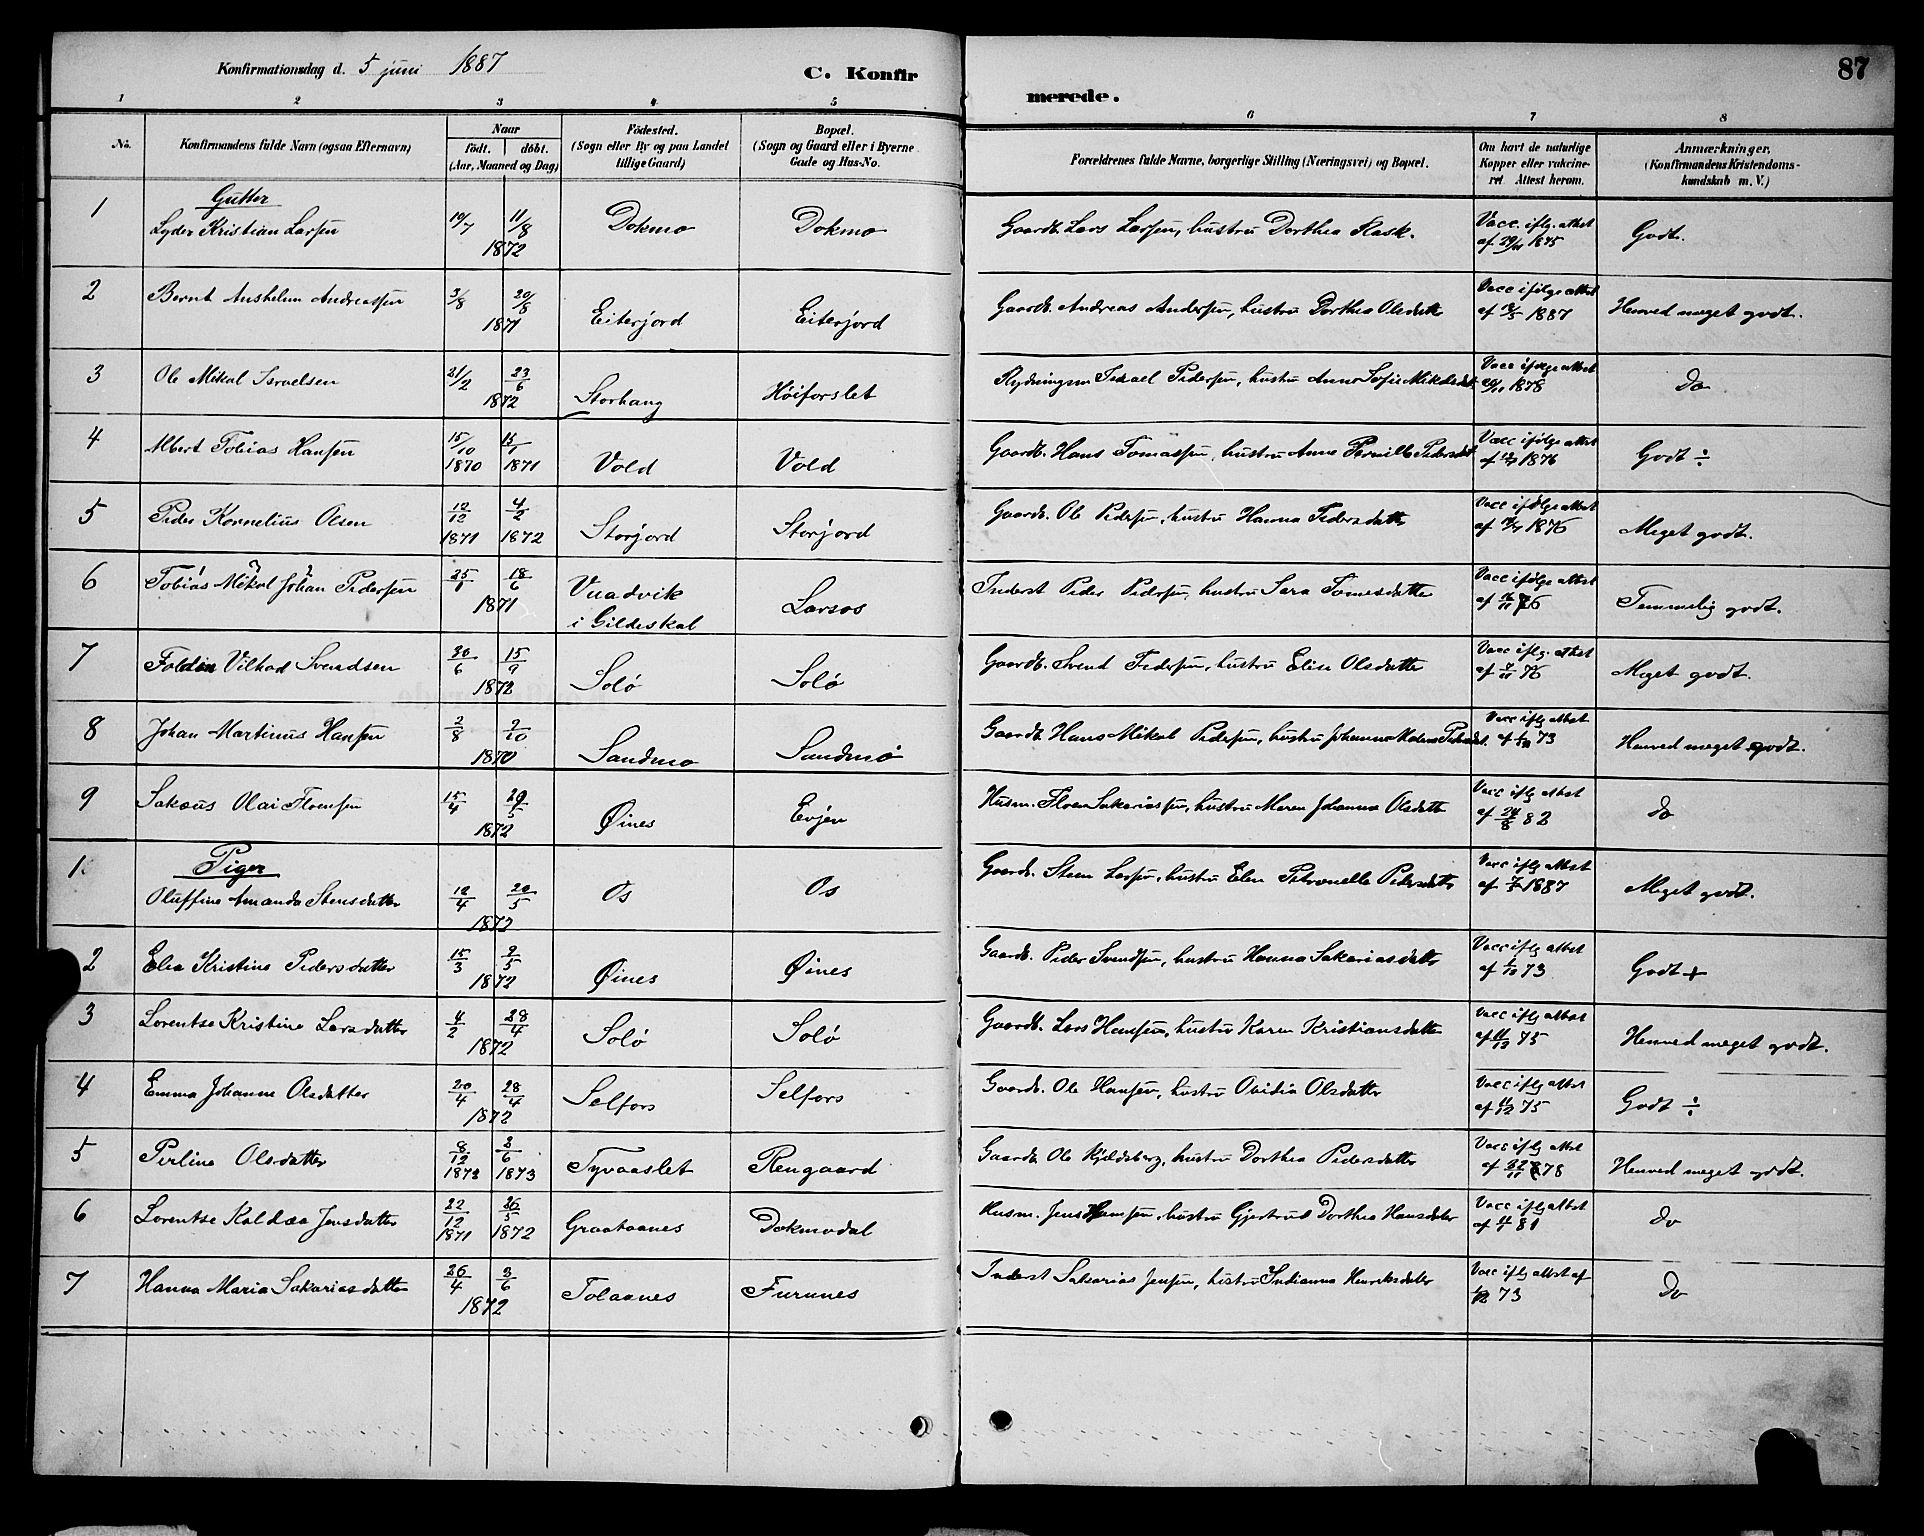 Konfirmationsdag d. 5 juni 1887
C. Konfir
merede.
87
1 2 3 4 5 6 7 8
No.
Konfirmandens fulde Navn (ogsaa Efternavn)
Naar
født. døbt.
(Aar, Maaned og Dag)
Fødested.
(Sogn eller By og paa Landet
tillige Gaard)
Bopæl.
(Sogn og Gaard eller i Byerne
Gade og Hus-No.
Forældrenes fulde Navne, borgerlige Stilling (Næringsvei) og Bopæl.
Om havt de naturlige
Kopper eller vakcine-
ret Attest herom.
Anmærkninger,
(Konfirmandens Kristendoms-
kundskab m. V.)
Gutter
1 Lyder Kristian Larsen 19/7 11/8 1872 Dokmo Dokmo Gaardb. Lars Larsen, hustru Dorthea Rask. Vacc. iflg. attest af 1875 Godt.
2 Bernt Anshelm Andreassen 3/8 20/8 1871 Eiterjord Eiterjord Gaardb. Andreas Andersen, hustru Dorthea Olsdatter Vacc ifølge attest af 1887 Henved meget godt.
3 Ole Mikal Isralsen 21/2 23/6 1872 Storhaug Høiforslet Rydningsm Israel Pedersen, hustru Anne Sofie Mikalsdat Vacc ifølge attest 1878 do
4 Albert Tobias Hansen 15/10 1870 15/1 1871 Vold Vold Gaardb. Hans Tomassen, hustru Anne Pernille Pedersdat Vacc ifølge attest af 1876 Godt ÷
5 Peder Kornelius Olsen 12/12 1871 4/2 1872 Storjord Storjord Gaardb. Ole Pedersen, hustru Hanna Pedersdatter Vacc ifølge attest af 1876 Meget godt.
6 Tobias Mikal Johan Pedersen 25/1 18/6 1871 Vaadvik i Gildeskal Larsos Inderst Peder Pedersen, hustru Sara Tomesdatter Vacc ifølge attest af 76 Temmelig godt.
7 Foldin Vilhad Svendsen 30/6 15/9 1872 Solø Solø Gaardb. Svend Pedersen, hustru Elise Olsdatter Vacc iflg. attest af 76 Meget godt.
8 Johan Martinus Hansen 2/8 2/10 1870 Sandmo Sandmo Gaardb. Hans Mikal Pedersen, hustru Johanna Pedersdat. Vacc iflg attest af 73 Henved meget godt.
9 Sakæus Olai Floensen 15/4 20/5 1872 Øines Evjen Husm. Floen Sakariassen, hustru Maren Johanna Olsdatter Vacc iflg attest af 24/8 82 do
Piger
1. Oluffine Amanda Stensdatter 12/4 20/5 1872 Os Os Gaardb. Steen Larsen, hustru Elen Petronelle Pedersdatter Vacc iflg attest af 1887 Meget godt.
2 Elea Kristine Pedersdatter 15/3 2/5 1872 Øines Øines Gaardb. Peder Svendsen, hustru Hanna Sakariasdatter Vacc iflg attest af 73 Godt +
3 Lorentse Kristine Larsdatter 4/2 28/4 1872 Solø Solø Gaardb. Lars Hansen, hustru Karen Kristiansdatter Vacc iflg attest af 75 Henved meget godt.
4 Emma Johanne Olsdatter 20/4 28/4 1872 Selfors Selfors Gaardb. Ole Hansen, hustru Ovidia Olsdatter Vacc iflg attest af 75 Godt ÷
5 Perline Olsdatter 8/12 1872 2/6 1873 Tyvaaslet Rengaard Gaardb. Ole Kjeldsberg, hustru Dorthea Pedersdatter Vacc iflg attest af 22/11 78 Henved meget godt.
6 Lorentse Kaldæa Jensdatter 22/12 1871 26/5 1872 Graataanes Dokmodal Husm. Jens Hansen, hustru Gjertrud Dorthea Hansdatter Vacc iflg attest af 81 do
7 Hanna Maria Sakariasdatter 26/4 3/6 1872 Tolaanes Furunes Inderst Sakarias Jensen, hustru Indianna Henriksdatter Vacc iflg attest af 73 Do